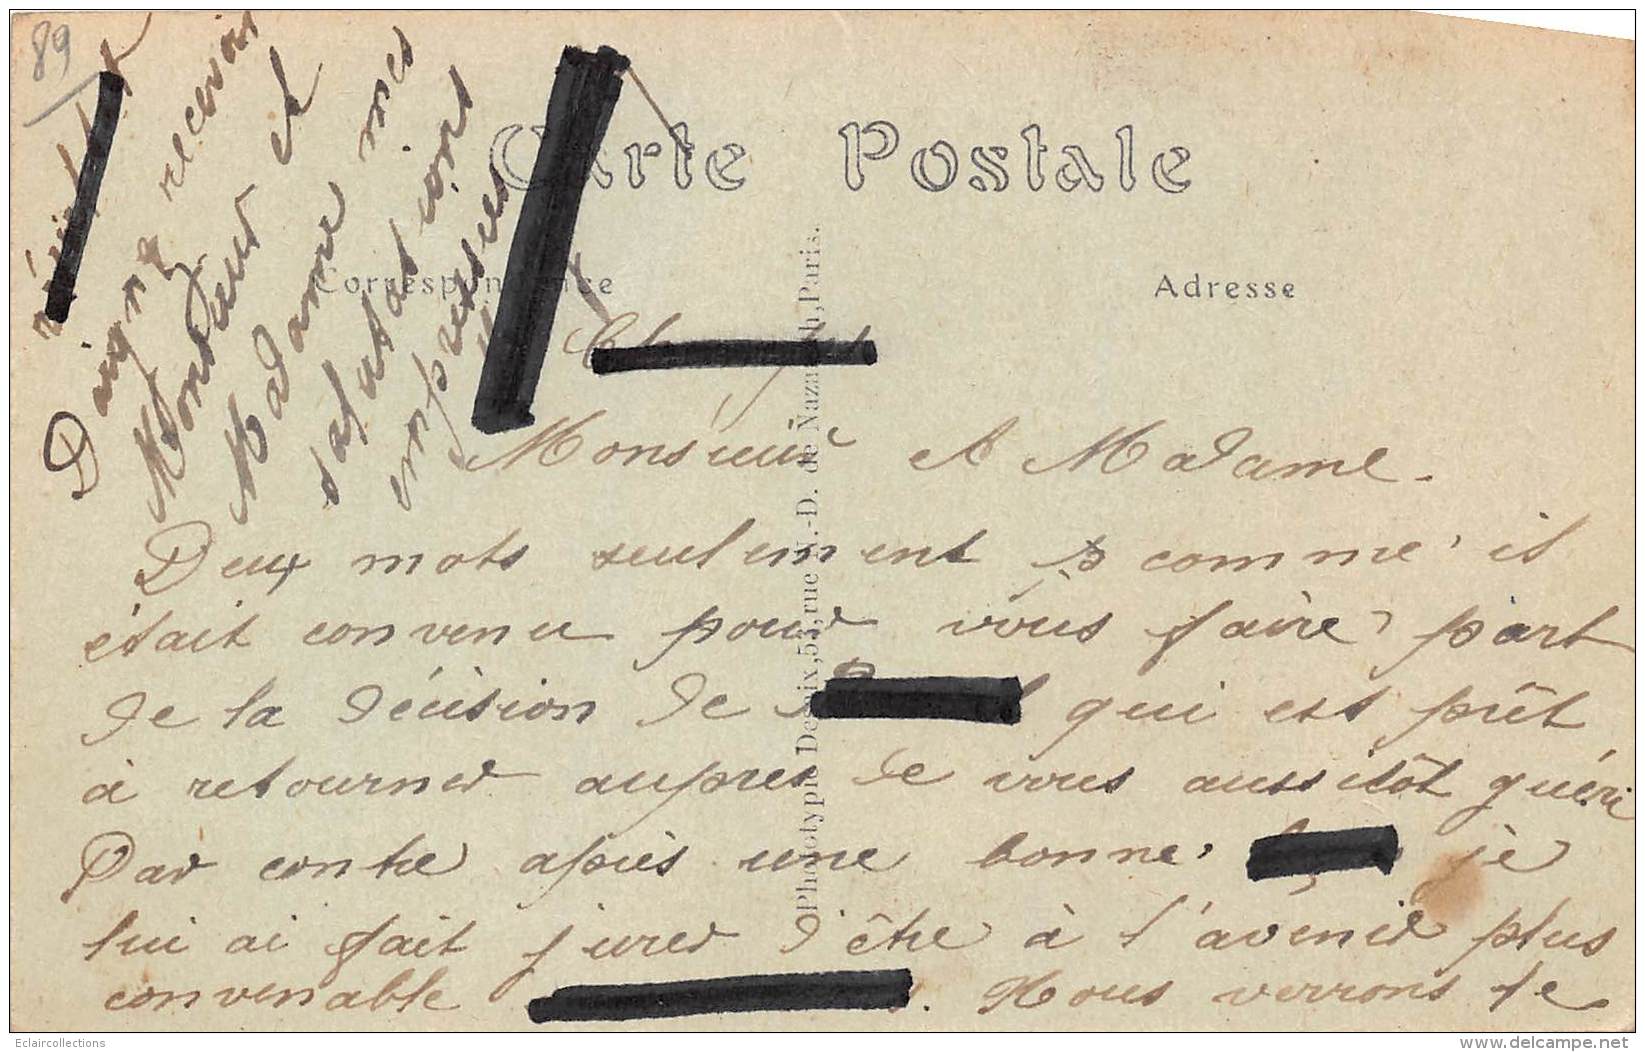 89
Carte Postale
Correspondance
Adresse
Phototypie Desaix, 53, rue N.-D. de Nazareth, Paris.
Monsieur et Madame.
Deux mots seulement comme il
était convenu pour vous faire part
de la décision de qui est prêt
à retourner auprès de vous aussitôt guéri
Par contre après une bonne je
lui ai fait jurer d'être à l'avenir plus
convenable . Nous verrons le
Daignez recevoir
Monsieur et
Madame mes
salutations
empressées
Eclaircollections
www.delcampe.net